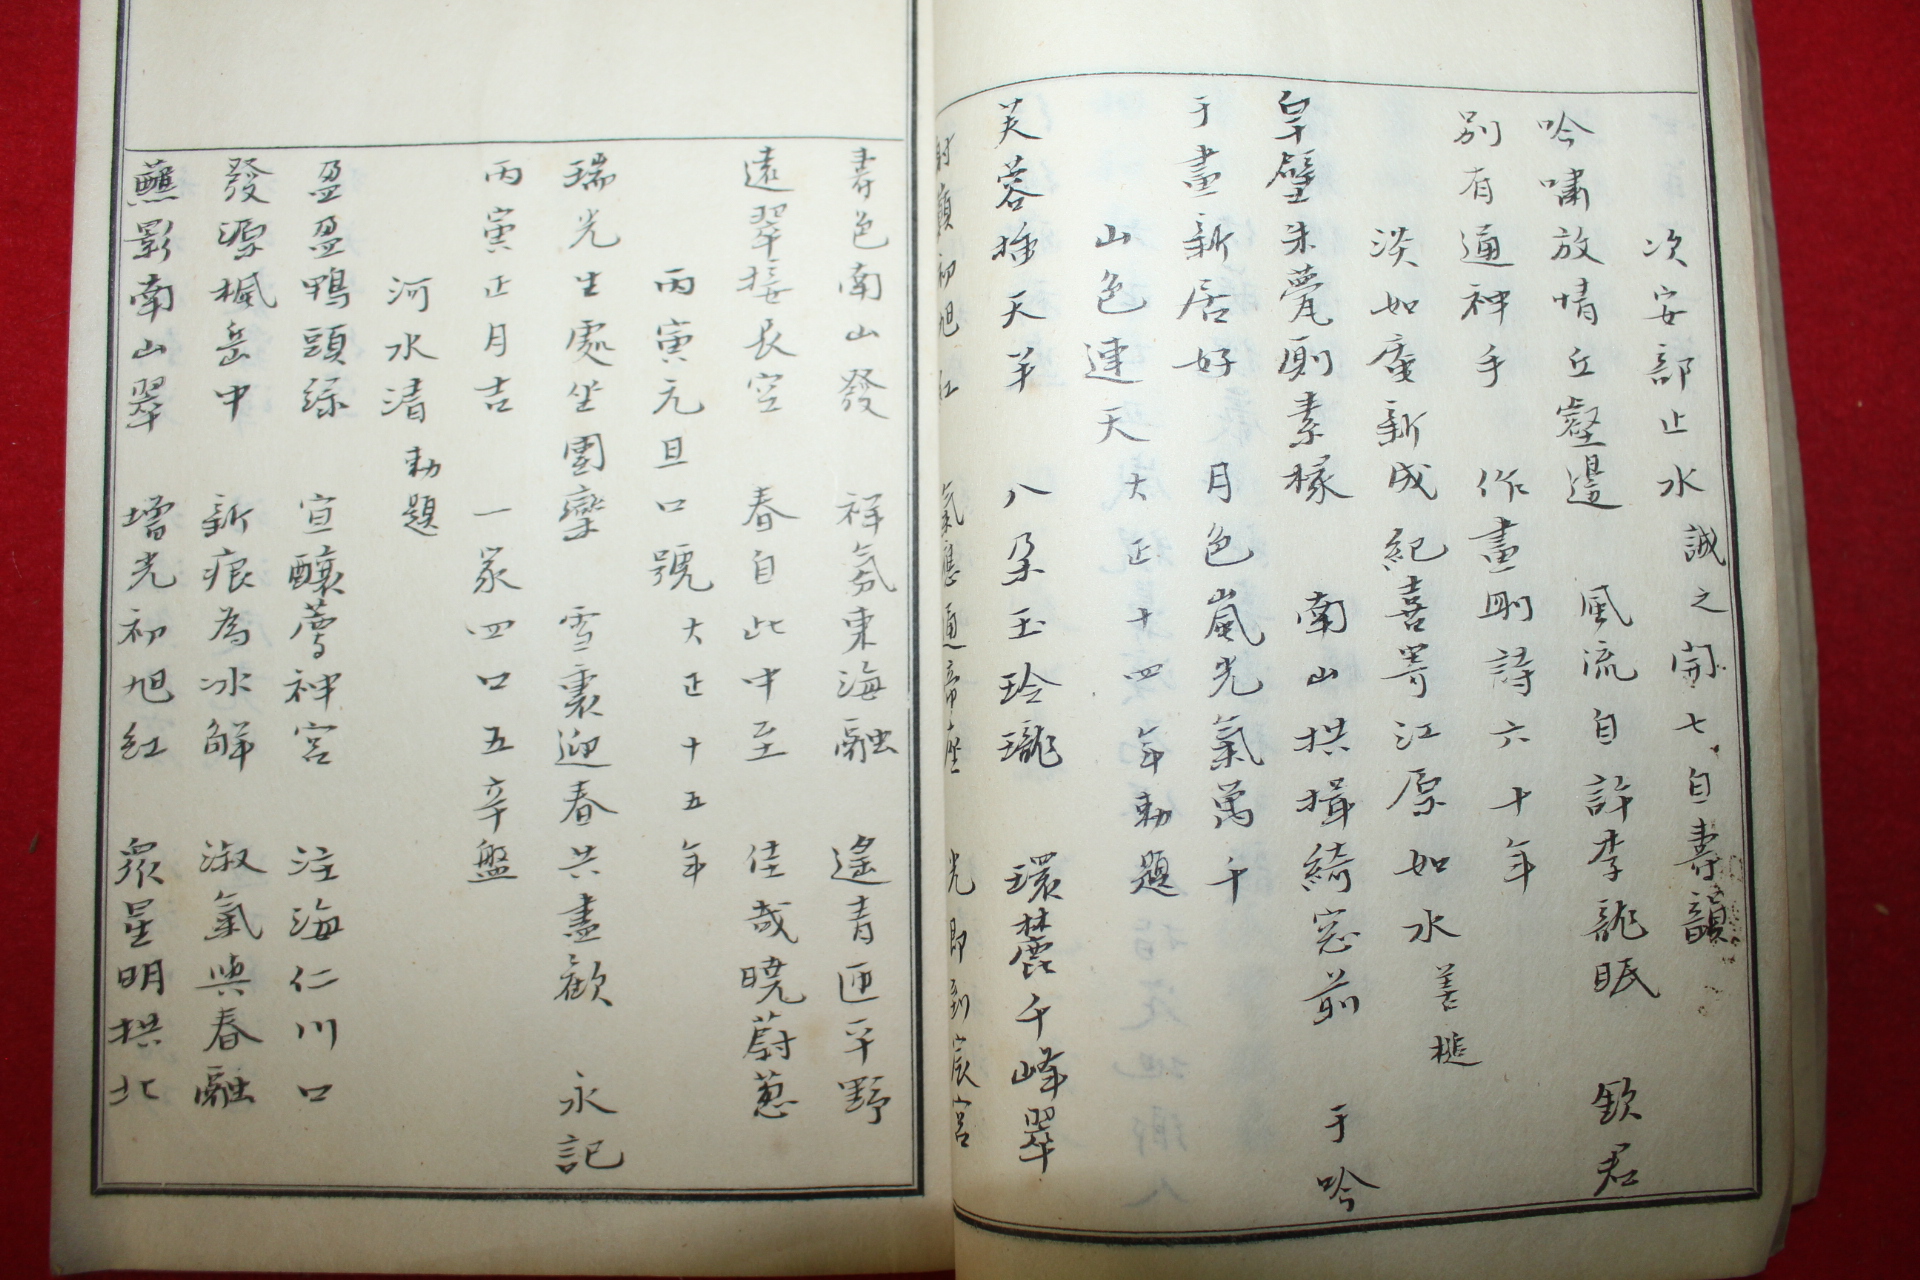 次安部止水誠之開七自壽韻
吟嘯放情丘壑邊 風流自許李龍眠 欽君
別有通神手 作畫剛詩六十年
淡如庵新成紀喜寄江原如水善槌
皁壁朱甍廁素椽 南山拱揖綺窓前 于吟
于畫新居好 月色嵐光氣萬千
山色連天 大正十四年勅題
芙蓉揷天半 八朶玉玲瓏 環麓千峰翠
射顚初旭紅 氣應通帝座 光即到宸宮
壽色南山發 祥氛東海融 遙青匝平野
遠翠接長空 春自此中至 佳哉曉蔚葱
丙寅元旦口號 大正十五年
瑞光生處坐團欒 雪裏迎春共盡歡 永記
丙寅正月吉 一家四口五辛盤
河水清 勅題
盈盈鴨頭綠 宣釀蕚神宮 注海仁川口
發源楓岳中 新痕為冰解 淑氣與春融
蘸影南山翠 增光初旭紅 衆星明拱北